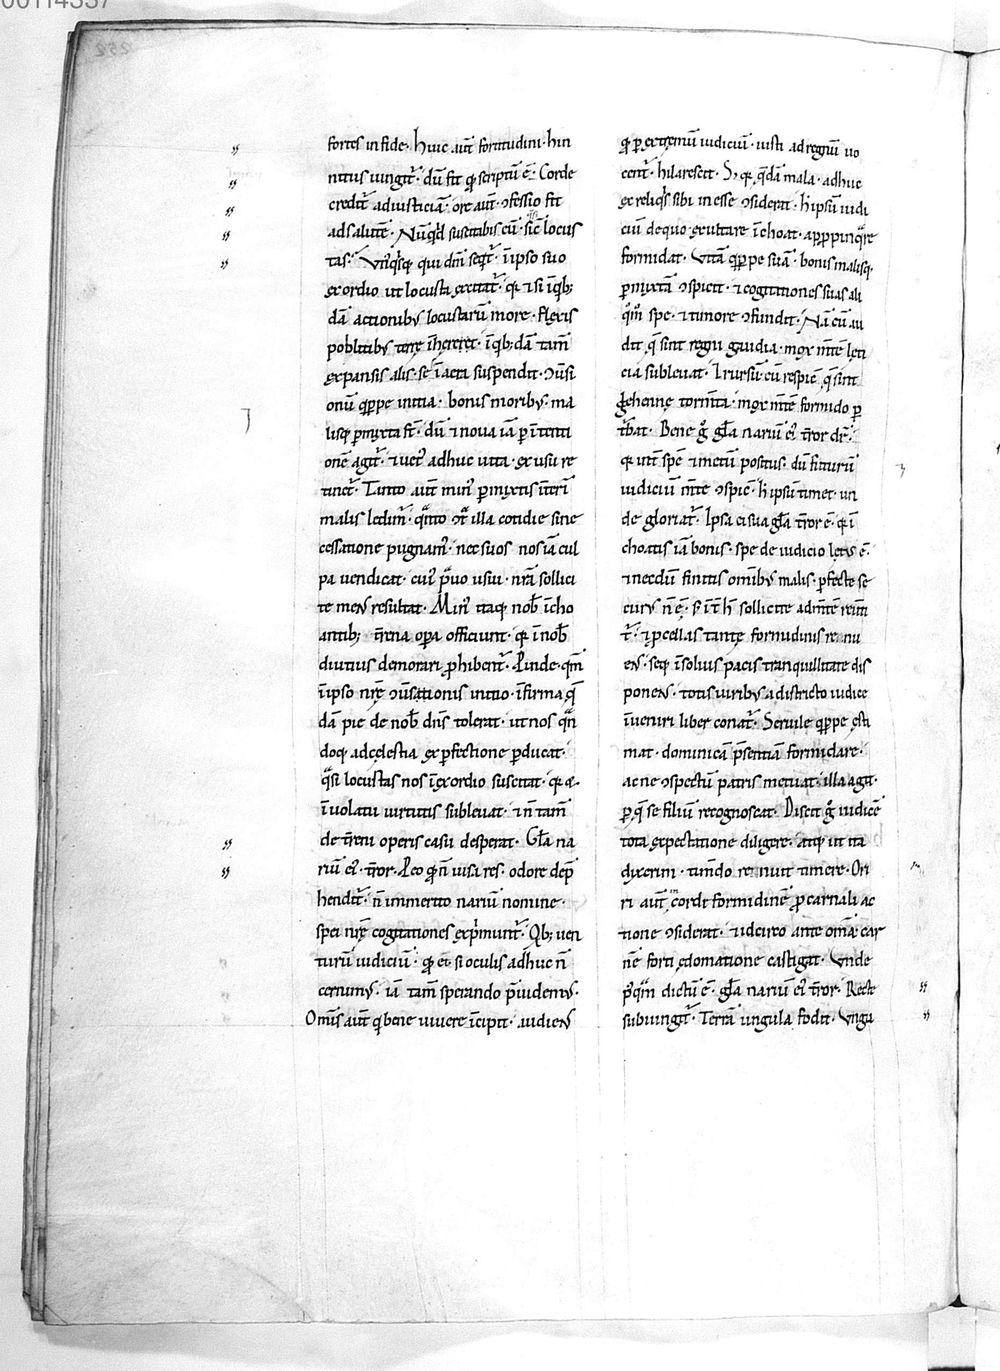 00114337
252
fortes in fide· Huic aut̄ fortitudini· hin
nitus iungit᷑· dū fit qđ scriptū ē· Corde
credit᷑ ad iusticiā· ore aut̄· ↄfessio fit
ad salutē· Nūqͥd suscitabis eū· sic̄ locus
tas· Vn̄qͥsq; qui dm̄ seqͥt᷑· īipso suo
exordio ut locusta excitat᷑· qꝛ ⁊ si īqͥb;
dā actionib; locustarū more· flexis
poblitib; terrę īhereret· īqͥb;dā tam̄
expansis alis· se ī aera suspendit· ↄūsi
onū qͥppe initia· bonis morib;· ma
lisq; ꝑmixta st̄· dū ⁊ noua iā ꝑ ītenti
onē agit᷑· ⁊ uet᷒ adhuc uita· ex usu re
tinet᷑· Tanto aut̄ min᷒ ꝑmixtis īterī
malis ledim᷒· qͣnto ↄtͣ illa cotidie sine
cessatione pugnam᷒· nec suos nos iā cul
pa uendicat· cui᷒ pͣuo usui· nrā̄ sollici
te mens resultat· Min᷒ itaq; nob̄ īcho
antib;· t̄rena oꝑa officiunt· qꝛ ī nob̄
diutius demorari ꝓhibent᷑· Proinde· qm̄
īipso nrę ↄūsationis initio· īfirma qͥ
dā pie de nob̄ dn̄s tolerat· ut nos qn̄
doq; ad cęlestia ex ꝑfectione ꝑducat·
qͣsi locustas nos īexordio suscitat· qꝛ &
īuolatu uirtutis subleuat· ⁊ n̄ tam̄
de t̄reni operis casu desperat· Gl̄a na
riū ei᷒· t̄ror· Pro eo qđ n̄ uisa res· odore dep̄
hendit᷑· n̄ immerito nariū nomine·
spei nrę cogitationes exp̄munt᷑· Qͥb; uen
turū iudiciū· qđ etsi oculis adhuc n̄
cernim᷒· iā tam̄ sperando p̄uidem᷒·
Omīs aut̄ qͥ bene uiuere īcipit· audiens
qđ ꝑ extremū iudiciū· iusti ad regnū uo
cent᷑· hilarescit· S; qꝛ qͣdā mala· adhuc
ex reliqͥs sibi in esse ↄsiderat· h̄ ipsū iudi
ciū de quo exultare īchoat· apꝓpinqͣre
formidat· Vitā qͥppe suā· bonis malisq;
ꝑmixtā ↄspicit· ⁊ cogitationes suas ali
qͣm̄ spe· ⁊ timore ↄfundit· Nā cū au
dit qͥ sint regni gaudia· mox mt̄ē leti
cia subleuat· ⁊ rursū cū respic̄ qͥ sint
gehennę torm̄ta· mox mt̄ē formido ꝑ
t᷑bat· Bene gͦ gl̄a nariū ei᷒ t̄ror dr̄·
qꝛ int̄ spē ⁊ metū positus· dū futurū
iudiciū mt̄e ↄspic̄· h̄ ipsū timet· un
de gloriat᷑· Ipsa ei sua gl̄a t̄ror ē· qꝛ ī
choatis iā bonis· spe de iudicio let᷒ ē·
⁊ necdū finitis omīb; malis· ꝑfecte se
cur᷒ n̄ ē· S; īt̄ h̄ sollicite ad mt̄ē reuti
t᷑· ⁊ ꝓcellas tantę formidinis renu
ens· seq; īsoluis pacis tranquillitate dis
ponens· totis uirib; a districto iudice
īueniri liber conat᷑· Seruile qͥppe esti
mat· dominicā p̄sentiā formidare·
ac ne ↄspectū patris metuat· illa agit·
ꝑ qͥ se filiū recognoscat· Discit gͦ iudicē
tota expectatione diligere· atq; ut ita
dixerim· timendo renuit timere· Ori
ri aut̄ cordi formidinē ꝓ carnali ac
tione ↄsiderat· ⁊ idcirco ante om̄ā car
nē forti edomatione castigat· Vnde
p᷒qͣm dictū ē· gl̄a nariū ei᷒ t̄ror· Recte
subiungit᷑· Terrā ungula fodit· Vngu